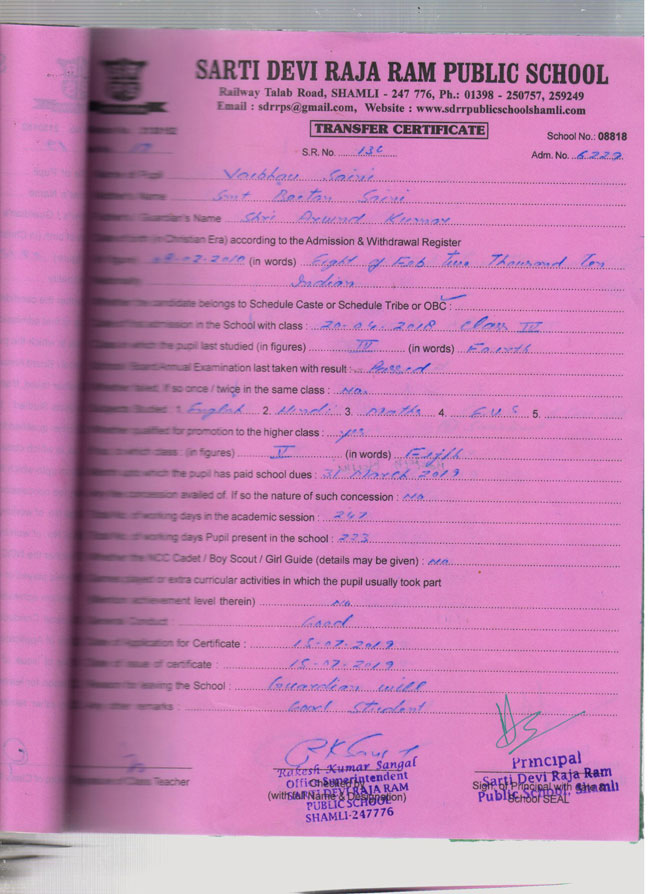 SARTI DEVI RAJA RAM PUBLIC SCHOOL
Railway Talab Road, SHAMLI - 247 776, Ph.: 01398 - 250757, 259249
Email : sdrrps@gmail.com, Website : www.sdrrpublicschoolshamli.com
TRANSFER CERTIFICATE
School No.: 08818
S.R. No. 136
Adm. No. 6229
of Pupil Vaibhav Saini
Name Smt Saini
Guardian's Name Shri Arvind Kumar
(in Christian Era) according to the Admission & Withdrawal Register
08-02-2010 (in words) Eight of Feb Two Thousand Ten
Indian
Whether the candidate belongs to Schedule Caste or Schedule Tribe or OBC :
Date of first admission in the School with class : 20-04-2018 Class IV
Class in which the pupil last studied (in figures) IV (in words) Fourth
School / Board/Annual Examination last taken with result :- Passed
Whether failed, if so once / twice in the same class : No.
Subjects Studied : 1. English 2. Hindi 3. Maths 4. E.V.S 5.
Whether qualified for promotion to the higher class : yes
to which class : (in figures) V (in words) Fifth
which the pupil has paid school dues : 31 March 2019
Any fee concession availed of. If so the nature of such concession : No
Total No. of working days in the academic session : 247
Total No. of working days Pupil present in the school : 223
Whether the NCC Cadet / Boy Scout / Girl Guide (details may be given) : No
Games played or extra curricular activities in which the pupil usually took part
(Mention achievement level therein) No
General Conduct : Good
Date of Application for Certificate : 15-07-2019
Date of issue of certificate : 15-07-2019
Reason for leaving the School : Guardian will
Any other remarks : Good Student
Signature of Class Teacher
Rakesh Kumar Sangal
Office Superintendent
SARTI DEVI RAJA RAM
PUBLIC SCHOOL
SHAMLI-247776
Checked by
(with full Name & Designation)
Principal
Sarti Devi Raja Ram
Public School, Shamli
Sign. of Principal with date &
School SEAL